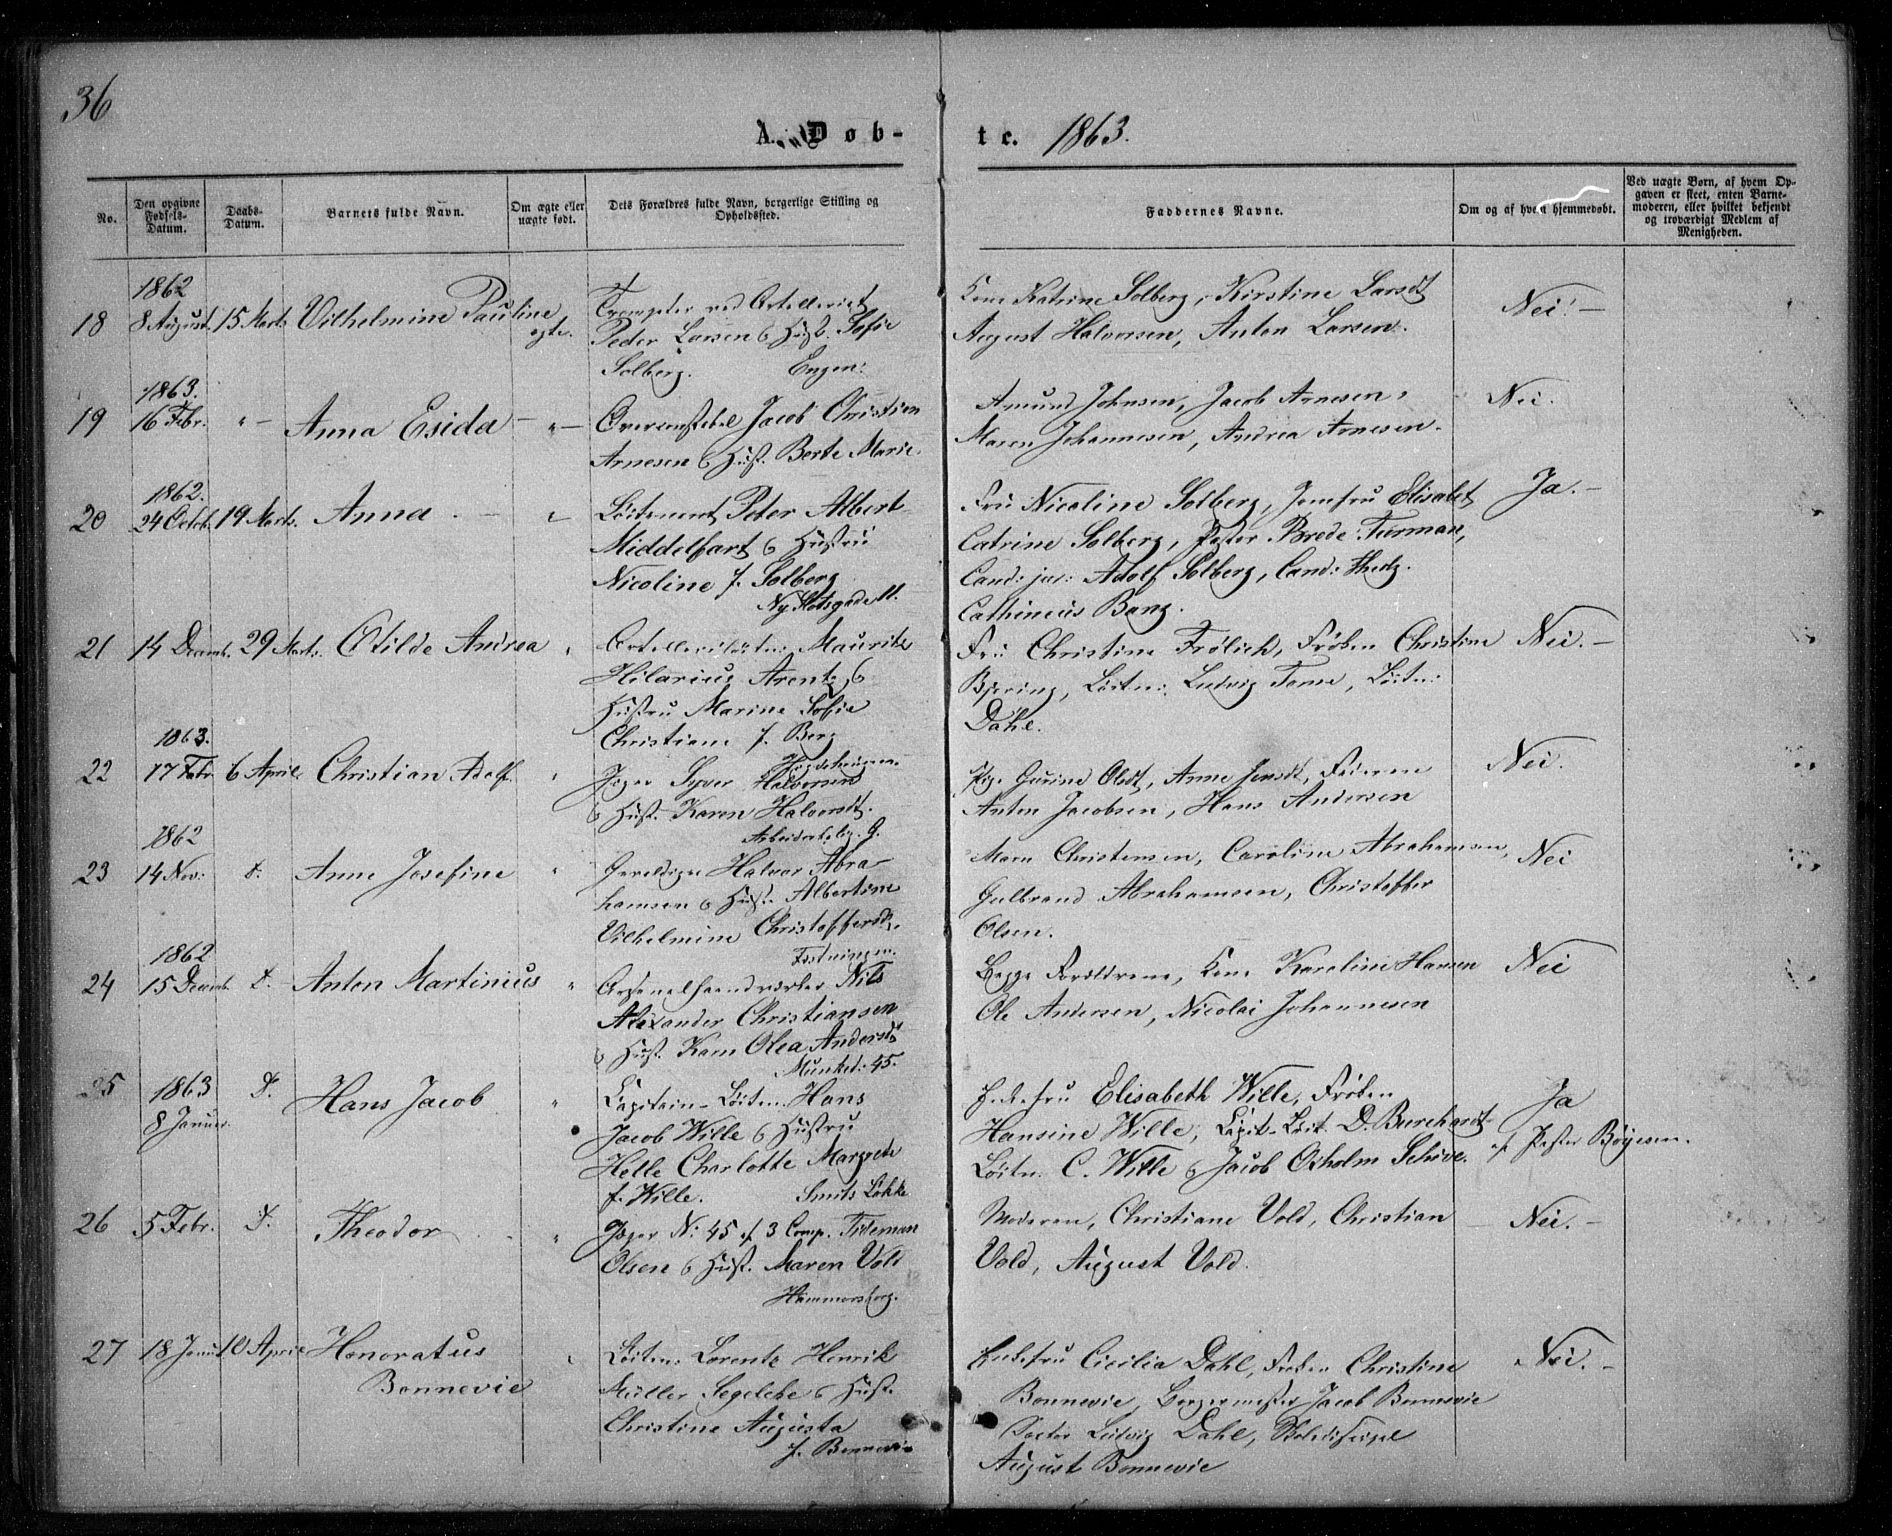 36
A. Døb-
te. 1863.
No.
Den opgivne Fødsels-Datum.
Daabs-Datum.
Barnets fulde Navn.
Om ægte eller uægte født.
Dets Forældres fulde Navn, borgerlige Stilling og Opholdssted.
Faddernes Navne.
Om og af hvem hjemmedøbt.
Ved uægte Børn, af hvem Opgaven er skeet, enten Barnemoderen, eller hvilket bekjendt og troværdigt Medlem af Menigheden.
1862
18 8 August 15 Marts Vilhelmine Pauline ægte.
Trompeter ved Artelleriet
Peder Larsen & Hust. Sofie
Solberg. Engen:
Kone Katrine Solberg, Kirstine Larsdt
August Halvorsen, Anton Larsen.
Nei! -
1863.
19 16 Febr. " - Anna Esida - " -
Overconstabel Jacob Christian
Arnesen & Hust. Berte Marie.
Amund Johnsen, Jacob Arnesen,
Maren Johannesen, Andrea Arnesen.
Nei.
1862.
20 24 Octob. 19 Marts. Anna . - "
Løitenant Peter Albert
Middelfart & Hustru
Nicoline f. Solberg
Ny Slotsgade 11.
Fru Nicoline Solberg, Jomfru Elisabet
Catrine Solberg, Pastor Brede Furman,
Cand: jur: Adolf Solberg, Cand: Theolg.
Cathinius Bang.
Ja. -
21 14 Decemb. 29 Marts. Otilde Andrea "
Artelleriløitn: Mauritz
Hilarius Arentz &
Hustru Marine Sofie
Christiane f. Berg
Fru Christine Frølich, Frøken Christine
Bjerring, Løitn: Ludvig Tome, Løitn:
Dahl.
Nei. -
1863.
22 17 Febr 6 April Christian Adolf. "
Jæger Syver Halvorsen
& Hust. Karen Halvorsdt.
Arbeiderbolig. G.
Pige Gurine Olsdt, Anne Jensdt, Faderen
Anton Jacobsen, Hans Andersen
Nei.
1862
23 14 Nov: D. Anne Josefine "
Halvor Abra-
hamsen & Hust. Albertine
Vilhelmine Christoffersdt.
Festningen.
Maren Christensen, Caroline Abrahamsen,
Gulbrand Abrahamsen, Christoffer
Olsen.
Nei
1862
24 15 Decemb. D. Anton Martinius "
Arsenalhaandverker Nils
Alexander Christiansen
& Hust. Karn Olea Andersdt
Munked: 45.
Begge Forældrene, Kone Karoline Hansen
Ole Andersen, Nicolai Johannesen
Nei
1863
25 8 Januar. D. Hans Jacob "
Capitain-Løitn. Hans
Jacob Wille & Hustru
Helle Charlotte Margrete
f. Wille. Smits Løkke
Enkefru Elisabeth Wille, Frøken
Hansine Wille, Capit-Løit. D. Burchardt
Løitn. C. Wille & Jacob Oxholm Schive.
Ja
af Pastor Bøyesen.
26 5 Febr. D. Theodor "
Jæger No: 45 af 3 Comp. Tideman
Olsen & Hust. Maren Vold
Hammersborg.
Moderen, Christiane Vold, Christian
Vold, August Vold.
Nei. -
27 18 Januar 10 April Honoratus
Bonnevie "
Løitn: Lorentz Henrik
Müller Segelcke & Hust.
Christine Augusta
f. Bonnevie
Enkefru Cicilia Dahl, Frøken Christine
Bonnevie, Borgermester Jacob Bonnevie
Doctor Ludvig Dahl, Skoledisipel
August Bonnevie
Nei. -